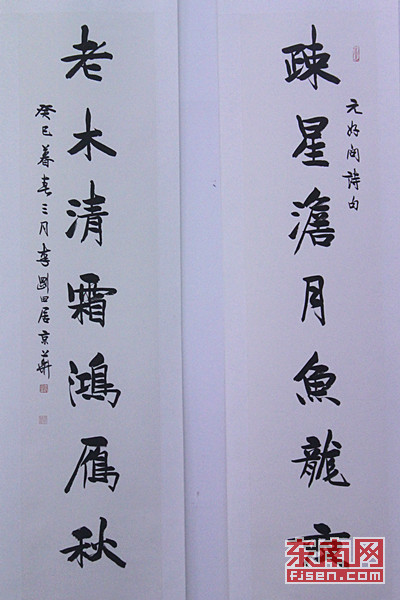 元好问詩句
疎星澹月魚龍夜
老木清霜鴻雁秋
癸巳暮春三月李剛田居京華
东南网
FJSEN.COM